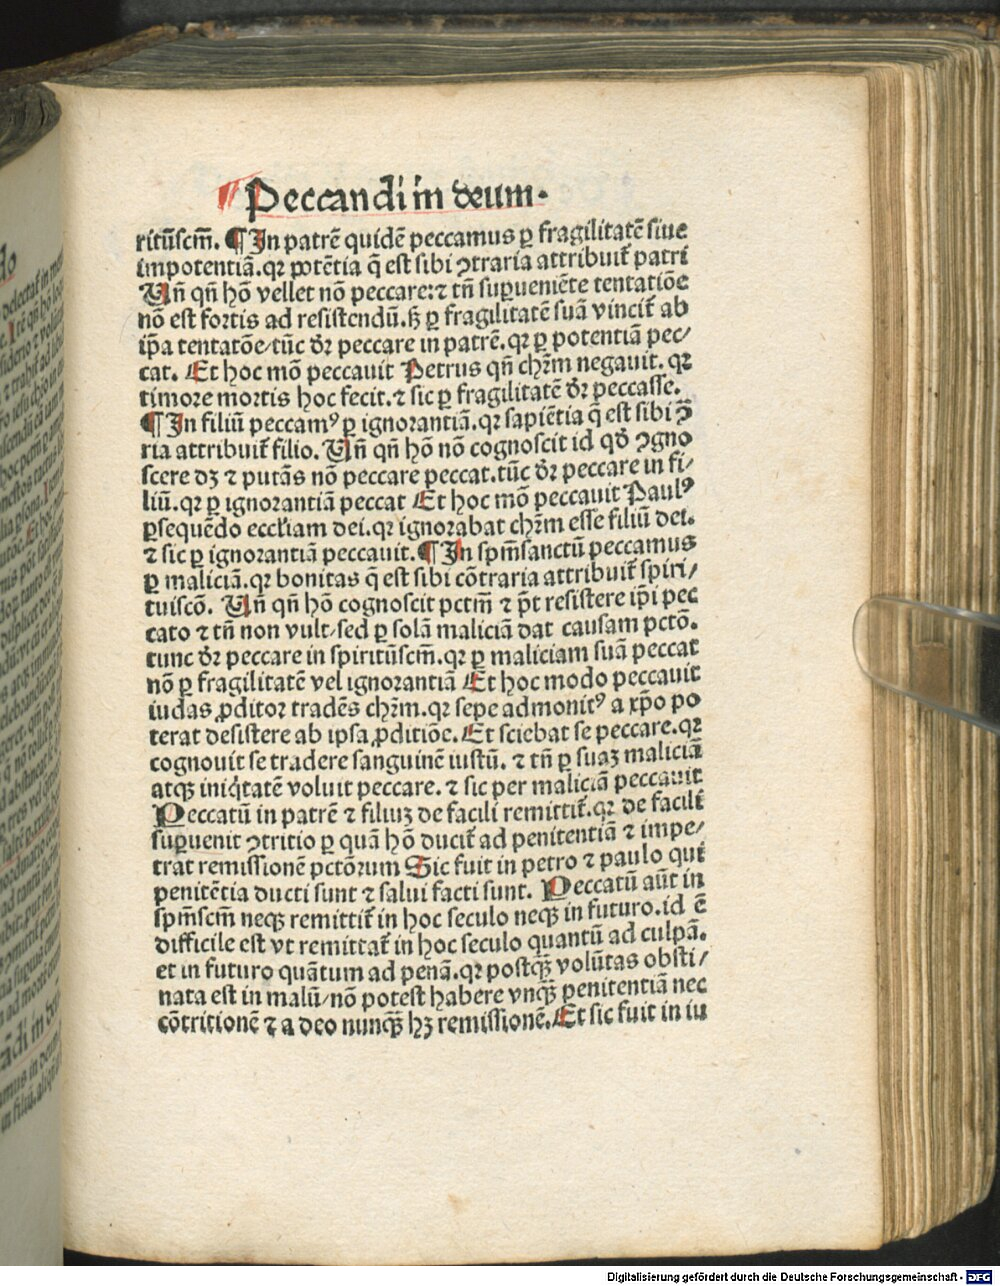 Peccandi in deum.
ritūscm̄. ¶ In patrē quidē peccamus ꝑ fragilitatē siue
impotentiā. qꝛ potētia q̄ est sibi ↄtraria attribuit᷑ patri
Uñ qñ hō vellet nō peccare: ⁊ tñ suꝑueniēte tentatiōe
nō est fortis ad resistendū. sꝫ ꝑ fragilitatē suā vincit᷑ ab
ip̄a tentatōe/ tūc dr̄ peccare in patrē. qꝛ ꝑ potentiā pec/
cat. Et hoc mō peccauit Petrus qñ chr̄m negauit. qꝛ
timore mortis hoc fecit. ⁊ sic ꝑ fragilitatē dr̄ peccasse.
¶ In filiū peccamꝰ ꝑ ignorantiā. qꝛ sapiētia q̄ est sibi ↄ̄
ria attribuit᷑ filio. Uñ qñ hō nō cognoscit id qd̄ ↄgno
scere dꝫ ⁊ putās nō peccare peccat. tūc dr̄ peccare in fi/
liū. qꝛ ꝑ ignorantiā peccat Et hoc mō peccauit Paulꝰ
ꝑsequēdo eccl'iam dei. qꝛ ignorabat chr̄m esse filiū dei.
⁊ sic ꝑ ignorantiā peccauit. ¶ In spm̄sanctū peccamus
ꝑ maliciā. qꝛ bonitas q̄ est sibi cōtraria attribuit᷑ spiri/
tuiscō. Uñ qñ hō cognoscit pctm̄ ⁊ pt̄ resistere ip̄i pec
cato ⁊ tñ non vult/ sed ꝑ solā maliciā dat causam pctō.
tunc dr̄ peccare in spiritūscm̄. qꝛ ꝑ maliciam suā peccat
nō ꝑ fragilitatē vel ignorantiā Et hoc modo peccauit
iudas ꝓditor tradēs chr̄m. qꝛ sepe admonitꝰ a xp̄o po
terat desistere ab ipsa ꝓditiōe. Et sciebat se peccare. qꝛ
cognouit se tradere sanguinē iustū. ⁊ tñ ꝑ suaꝫ maliciā
atqꝫ iniq̇tatē voluit peccare. ⁊ sic per maliciā peccauit
Peccatū in patrē ⁊ filiuꝫ de facili remittit᷑. qꝛ de facili
suꝑuenit ↄtritio ꝑ quā hō ducit᷑ ad penitentiā ⁊ impe/
trat remissionē pctōrum Sic fuit in petro ⁊ paulo qui
penitētia ducti sunt ⁊ salui facti sunt. Peccatū aūt in
spm̄scm̄ neqꝫ remittit᷑ in hoc seculo neqꝫ in futuro. id ē
difficile est vt remittat᷑ in hoc seculo quantū ad culpā.
et in futuro quātum ad penā. qꝛ postqꝫ̄ volūtas obsti/
nata est in malū/ nō potest habere vnqꝫ̄ penitentiā nec
cōtritionē ⁊ a deo nunqꝫ̄ hꝫ remissionē. Et sic fuit in iu
Digitalisierung gefördert durch die Deutsche Forschungsgemeinschaft - DFG